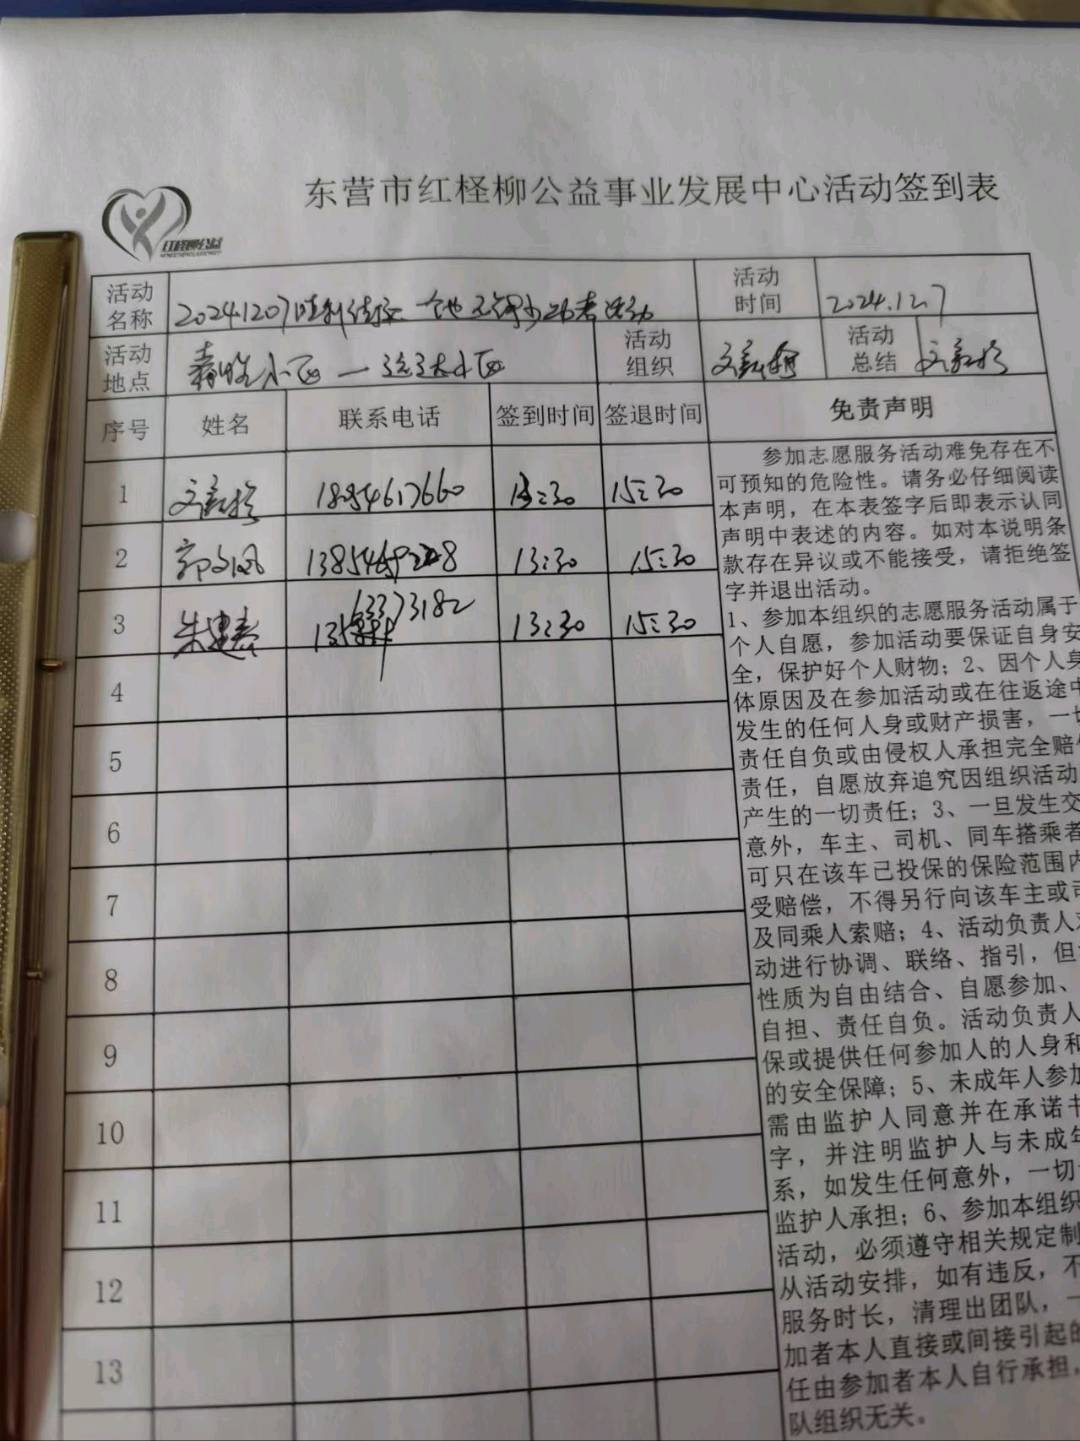 东营市红柽柳公益事业发展中心活动签到表
红柽柳公益
活动名称 20241207胜利街道 活动
活动时间 2024.12.7
活动地点 小区一远达小区
活动组织
活动总结
序号 姓名 联系电话 签到时间 签退时间 免责声明
1 18954617660 13:30 15:30
2 13:30 15:30
3 朱建春 13:30 15:30
4
5
6
7
8
9
10
11
12
13
参加志愿服务活动难免存在不
可预知的危险性。请务必仔细阅读
本声明，在本表签字后即表示认同
声明中表述的内容。如对本说明条
款存在异议或不能接受，请拒绝签
字并退出活动。
1、参加本组织的志愿服务活动属于
个人自愿，参加活动要保证自身安
全，保护好个人财物；2、因个人身
体原因及在参加活动或在往返途中
发生的任何人身或财产损害，一切
责任自负或由侵权人承担完全赔偿
责任，自愿放弃追究因组织活动
产生的一切责任；3、一旦发生交
意外，车主、司机、同车搭乘者
可只在该车已投保的保险范围内
受赔偿，不得另行向该车主或司
及同乘人索赔；4、活动负责人对
动进行协调、联络、指引，但
性质为自由结合、自愿参加、
自担、责任自负。活动负责人
保或提供任何参加人的人身和
的安全保障；5、未成年人参加
需由监护人同意并在承诺书
字，并注明监护人与未成年
系，如发生任何意外，一切
监护人承担；6、参加本组织
活动，必须遵守相关规定制
从活动安排，如有违反，不
服务时长，清理出团队，一
加者本人直接或间接引起的
任由参加者本人自行承担，
队组织无关。